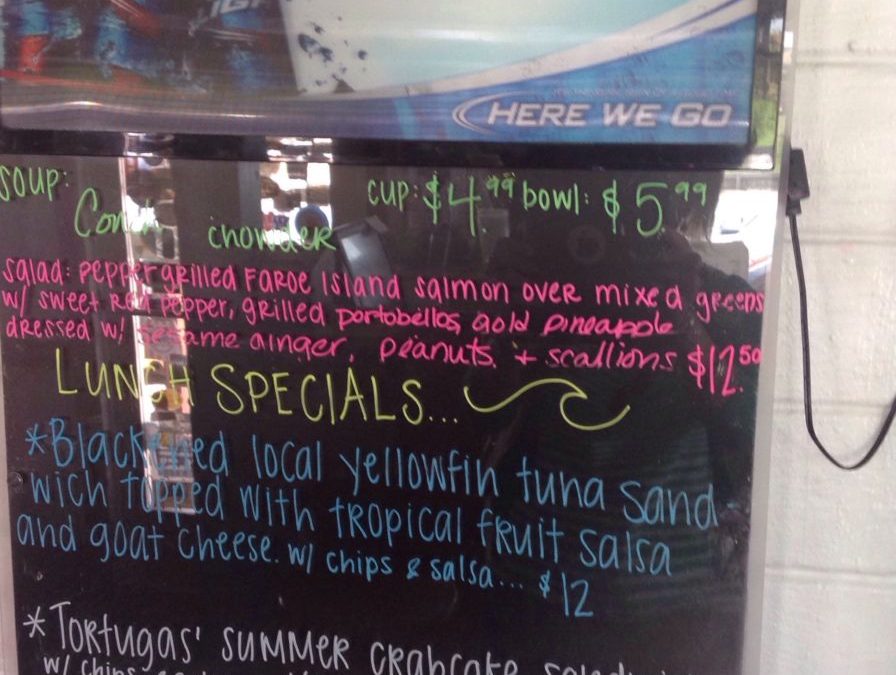 LIGHT
HERE WE GO
soup: cup: $4.99 bowl: $5.99
Conch chowder
salad: pepper grilled Faroe Island salmon over mixed greens
w/ sweet red pepper, grilled portobellos, gold pineapple
dressed w/ sesame ginger, peanuts, + scallions $12.50
LUNCH SPECIALS...
*Blackened local yellowfin tuna sand
wich topped with tropical fruit salsa
and goat cheese. w/ chips & salsa... $12
*Tortugas' summer crabcake
w/ chips